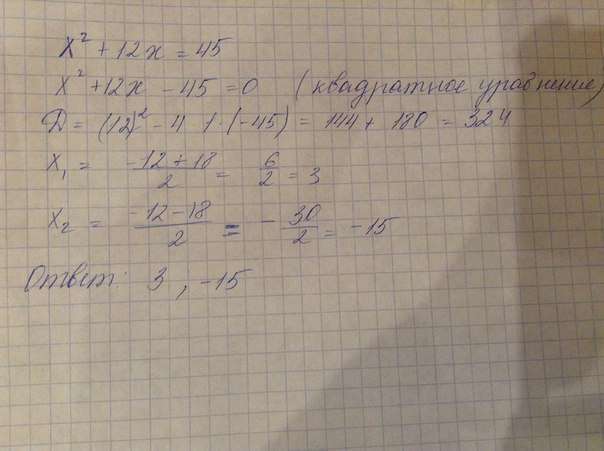 x² + 12x = 45
x² + 12x - 45 = 0 (квадратное уравнение)
Д = (12)² - 4 · 1 · (-45) = 144 + 180 = 324
x₁ = (-12 + 18)/2 = 6/2 = 3
x₂ = (-12 - 18)/2 = -30/2 = -15
Ответ: 3, -15